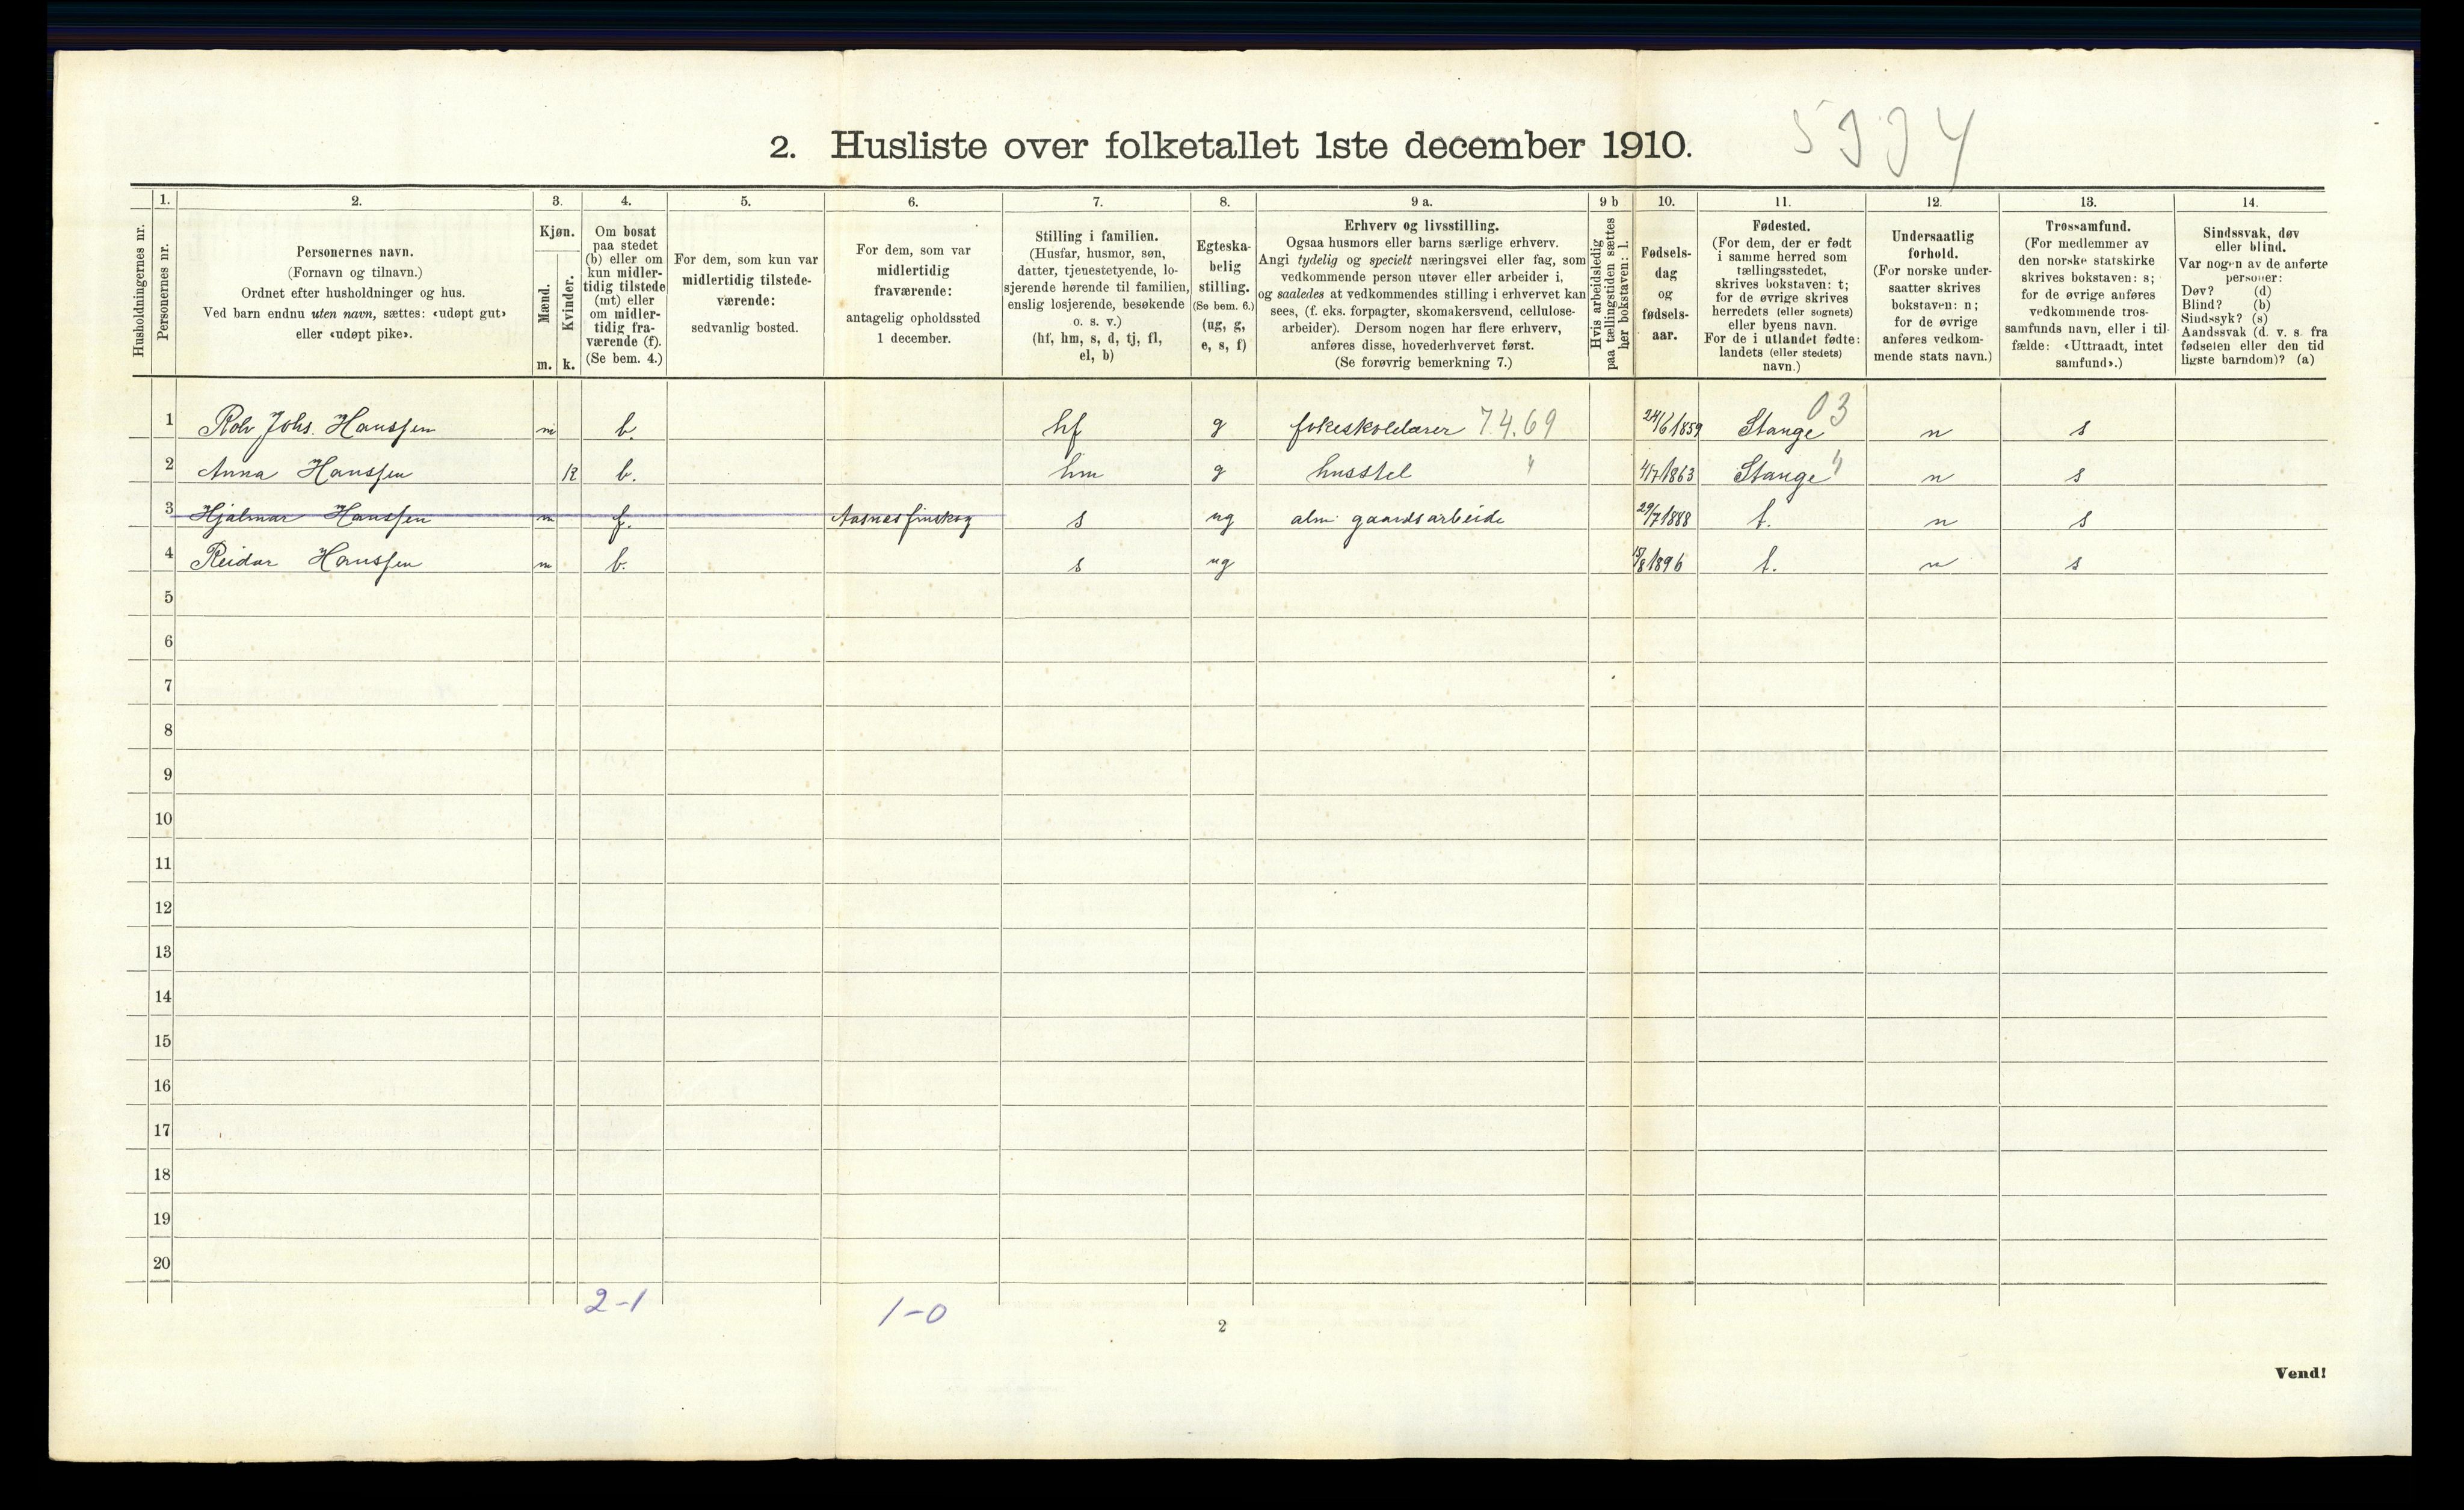 2. Husliste over folketallet 1ste december 1910.
Husholdningernes nr.
1. Personernes nr.
2. Personernes navn.
(Fornavn og tilnavn.)
Ordnet efter husholdninger og hus.
Ved barn endnu uten navn, sættes: «udøpt gut»
eller «udøpt pike».
3. Kjøn.
Mænd. m.
Kvinder. k.
4. Om bosat
paa stedet
(b) eller om
kun midler-
tidig tilstede
(mt) eller
om midler-
tidig fra-
værende (f).
(Se bem. 4.)
5. For dem, som kun var
midlertidig tilstede-
værende:
sedvanlig bosted.
6. For dem, som var
midlertidig
fraværende:
antagelig opholdssted
1 december.
7. Stilling i familien.
(Husfar, husmor, søn,
datter, tjenestetyende, lo-
sjerende hørende til familien,
enslig losjerende, besøkende
o. s. v.)
(hf, hm, s, d, tj, fl,
el, b)
8. Egteska-
belig
stilling.
(Se bem. 6.)
(ug, g,
e, s, f)
9 a. Erhverv og livsstilling.
Ogsaa husmors eller barns særlige erhverv.
Angi tydelig og specielt næringsvei eller fag, som
vedkommende person utøver eller arbeider i,
og saaledes at vedkommendes stilling i erhvervet kan
sees, (f. eks. forpagter, skomakersvend, cellulose-
arbeider). Dersom nogen har flere erhverv,
anføres disse, hovederhvervet først.
(Se forøvrig bemerkning 7.)
9 b Hvis arbeidsledig
paa tællingstiden sættes
her bokstaven: l.
10. Fødsels-
dag
og
fødsels-
aar.
11. Fødested.
(For dem, der er født
i samme herred som
tællingsstedet,
skrives bokstaven: t;
for de øvrige skrives
herredets (eller sognets)
eller byens navn.
For de i utlandet fødte:
landets (eller stedets)
navn.)
12. Undersaatlig
forhold.
(For norske under-
saatter skrives
bokstaven: n;
for de øvrige
anføres vedkom-
mende stats navn.)
13. Trossamfund.
(For medlemmer av
den norske statskirke
skrives bokstaven: s;
for de øvrige anføres
vedkommende tros-
samfunds navn, eller i til-
fælde: «Uttraadt, intet
samfund».)
14. Sindssvak, døv
eller blind.
Var nogen av de anførte
personer:
Døv? (d)
Blind? (b)
Sindssyk? (s)
Aandssvak (d. v. s. fra
fødselen eller den tid
ligste barndom)? (a)
1 Rolv Johs. Hanssen m b. hf g folkeskolelærer 7.4.69 24/6 1859 Stange 03 n s
2 Anna Hanssen k b. hm g husstel " 4/7 1863 Stange " n s
3 Hjalmar Hanssen m f. Aasnes finskog s ug alm gaardsarbeide 29/7 1888 t. n s
4 Reidar Hanssen m b. s ug 15/8 1896 t. n s
5
6
7
8
9
10
11
12
13
14
15
16
17
18
19
20
2-1
1-0
2
Vend!